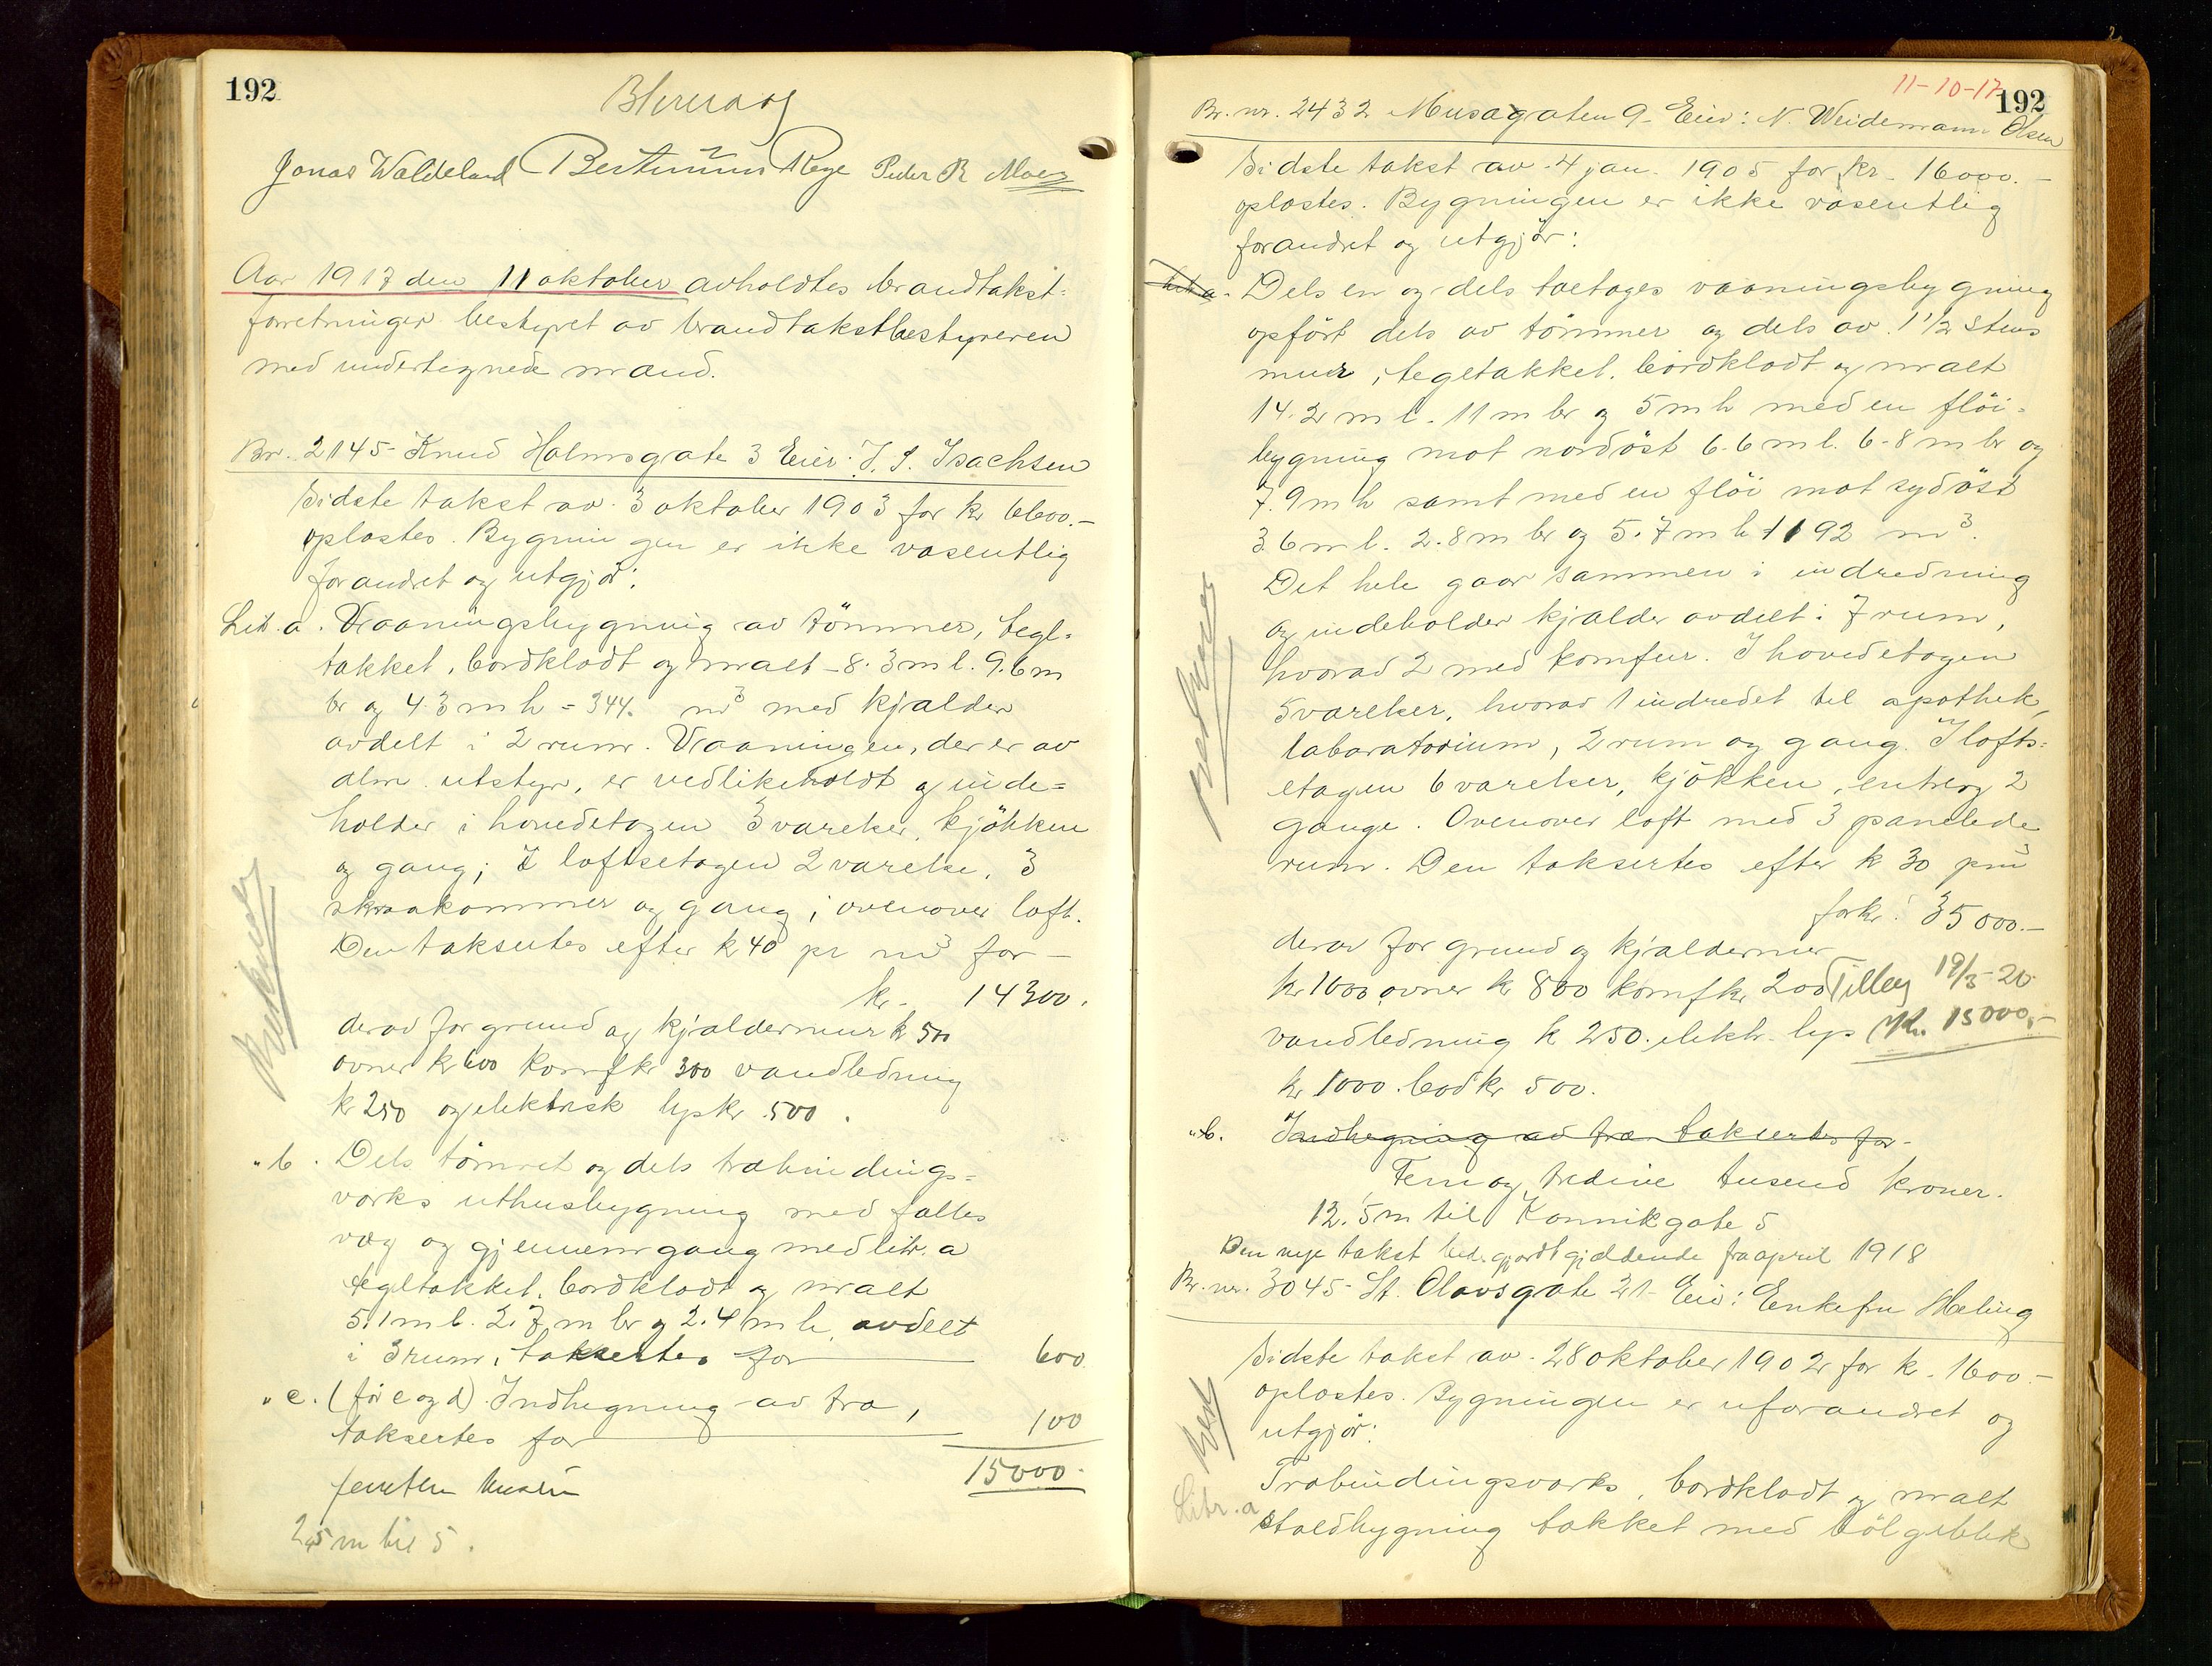 192
Jonas Waldeland Bertinius Rege Peder R Moen
Aar 1917 den 11 oktober avholdtes brandtakst-
forretninger bestyret av brandtakstbestyreren
med undertegnede mænd.
Br. 2145 Knud Holmsgate 3 Eier: J. S. Isachsen
Sidste takst av 3 oktober 1903 for kr 6600.-
oplæstes. Bygningen er ikke væsentlig
forandret og utgjør:
Litr. a. Vaaningsbygning av tömmer, tegl-
tækket, bordklædt og malt - 8.3 m l. 9.6 m
br og 4.3 m h = 344. m3 med kjælder
avdelt i 2 rum. Vaaningen, der er av
alm. utstyr, er vedlikeholdt og inde=
holder i hovedetagen 3 værelser, kjökken
og gang; I loftsetagen 2 værelse, 3
skraakammer og gang; ovenover loft.
Den taksertes efter kr 40 pr m3 for -
kr. 14300.
derav for grund og kjældermur kr 500
ovner kr 600 komf kr 300 vandledning
kr 250 og elektrisk lys kr. 500.
" b. Dels tömret og dels træbindings-
værks uthusbygning med fælles
væg og gjennemgang med litr. a
tegltækket, bordklædt og malt
5.1 m l. 2.7 m br og 2.4 m h, avdelt
i 3 rum, taksertes for 600
" c. (för c og d) Indhegning av træ,
taksertes for 100
15000.
femten tusen
2,5 m til 5.
11-10-17
192
Br. nr. 2432 Musægaten 9- Eier: N. Weidemann Olsen
Sidste takst av 4 jan. 1905 for kr. 16000.-
oplæstes. Bygningen er ikke væsentlig
forandret og utgjør:
Litr a. Dels en og dels toetages vaaningsbygning
opfört dels av tömmer og dels av 1 1/2 stens
mur, tegltækket, bordklædt og malt
14.2 m l. 11 m br og 5 m h med en flöi-
bygning mot nordöst 6.6 m l. 6.8 m br og
7.9 m h samt med en flöi mot sydöst
3.6 m l. 2.8 m br og 5.7 m h 1192 m3.
Det hele gaar sammen i indredning
og indeholder kjælder avdelt i 7 rum,
hvorav 2 med komfur. I hovedetagen
5 værelser, hvorav 1 indredet til apothek,
laboratorium, 2 rum og gang. I lofts=
etagen 6 værelser, kjökken, entre og 2
gange. Ovenover loft med 3 panelede
rum. Den taksertes efter kr 30 pr m3
for kr. 35000.-
derav for grund og kjældermur
kr 1000 ovner kr 800 komf kr 200 Tillæg 19/3-20
vandledning kr 250. elektr. lys Kr. 15000,-
kr 1000. bad kr 500.
" b. Indhegning av træ taksertes for -
Fem og tredive tusend kroner.
12.5 m til Kannikgate 5
Den nye takst bed. gjordt gjældende fra april 1918
Br. nr. 3045 St. Olavsgate 21- Eier: Enkefru Helvig
Sidste takst av 28 oktober 1902 for kr. 1600.-
oplæstes. Bygningen er uforandret og
utgjør:
Litr. a Træbindingsværks, bordklædt og malt
staldbygning tækket med bölgeblik